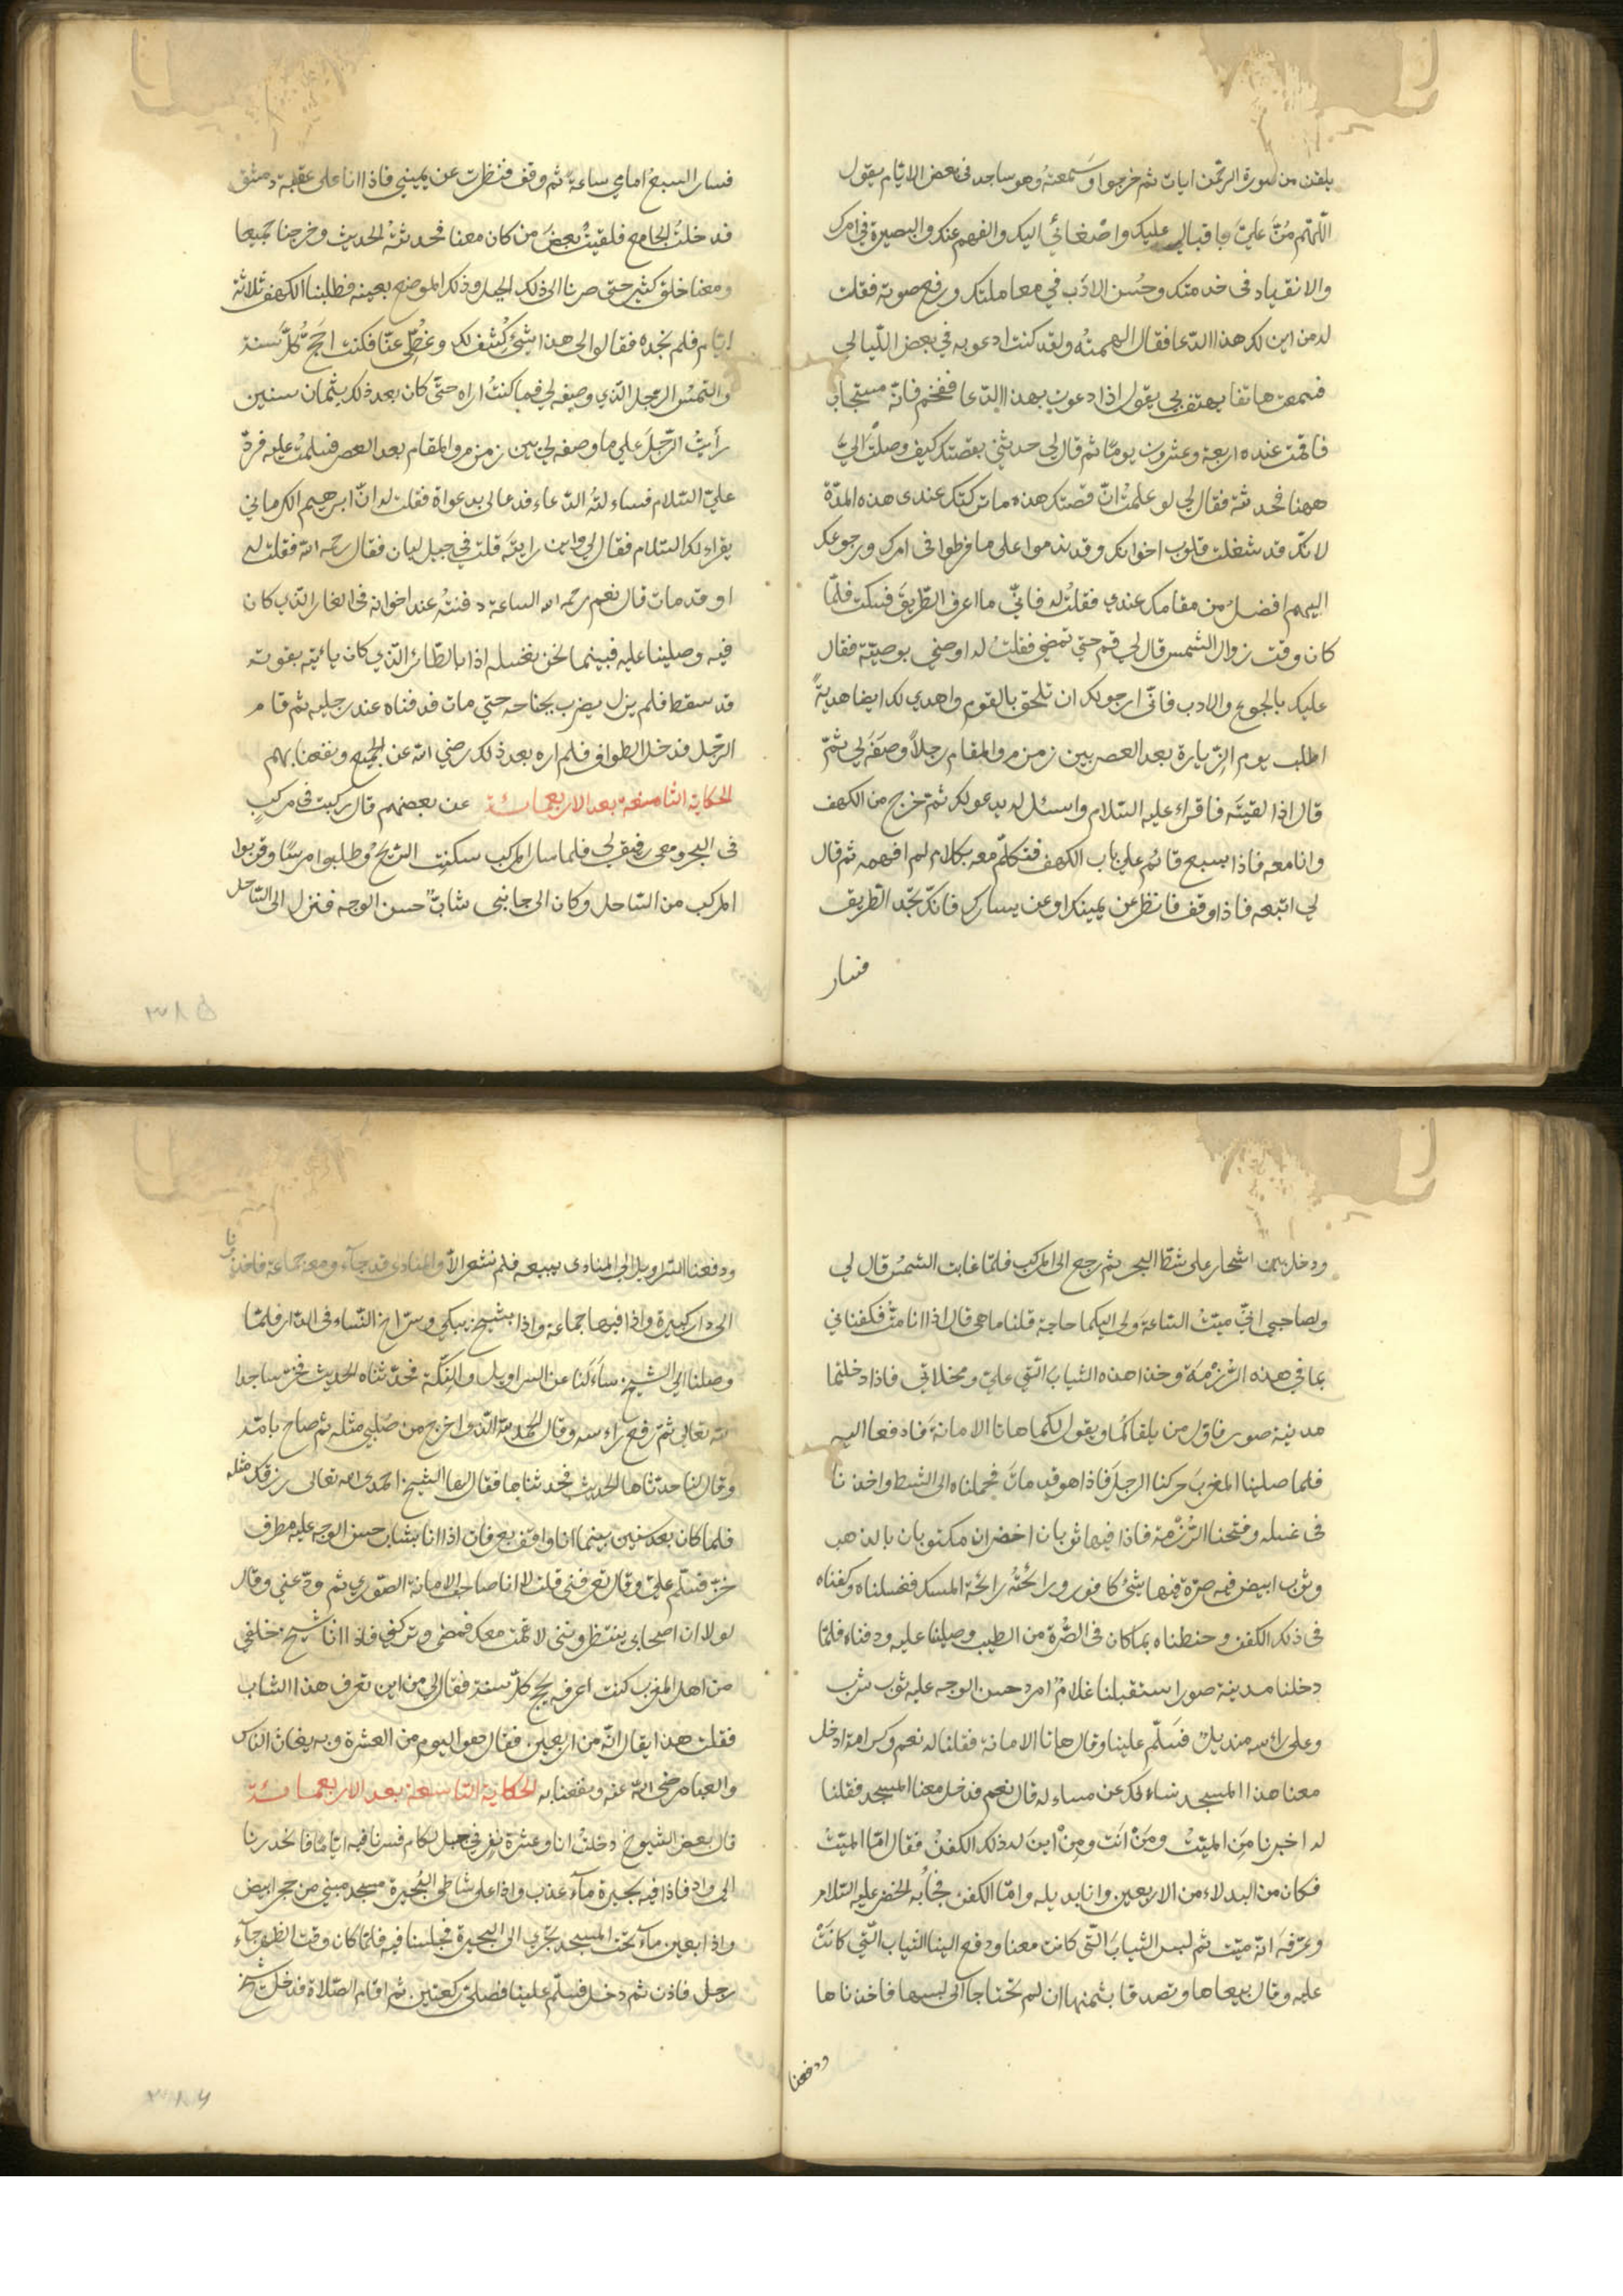 يلقن من سورة الرحمن ايات ثم خرجوا وَسَمعتهُ وهو ساجد فى بعض الايام يقول
اللّهمّ مُنَّ عليَّ باقبالي عليك واصْغائي اليك والفهم عنك والبصيرة في امرك
والانقياد فى خدمتك وحُسن الادَب في معاملتك ورفع صوته فقلت
له من اين لك هذا الدّعا فقال الهمتُه ولقد كنت ادعو به في بعض اللّيالي
فسمعت هاتفا يهتف بي يقول اذا دعوت بهذا الدّعا ففخم فانّه مستجاب
فاقمت عنده اربعة وعشرون يومًا ثم قال لي حدثني بقصّتك كيف وصلْتَ اليَّ
ههنا فحدثته فقال لي لو علمتُ انّ قصّتك هذه ما تركتك عندى هذه المدّة
لانّك قد شغلت قلوب اخوانك وقد ندموا على ما فرطوا فى امرك ورجوعك
اليهم افضلُ من مقامك عندي فقلتُ له فانّي ما اعرف الطّريقَ فسكت فلمّا
كان وقت زوال الشمس قال لي قم حتي تمضي فقلتُ له اوصني بوصيّة فقال
عليك بالجوع والادب فانّي ارجو لك ان تلحق بالقوم واهدي لك ايضا هديةً
اطلب يوم الزّيارة بعد العصر بين زمزم والمقام رجلاً وصفَه لي ثمّ
قال اذا لقيتَه فاقراء عليه السّلام واسئله يدعو لك ثم خرج من الكهف
وانا معه فاذا بسبع قائم على باب الكهف فتكلّم معه بكلام لم افهمه ثم قال
لي اتبعه فاذا وقف فانظر عن يمينك او عن يسارك فانّك تجد الطّريق
فسار
فسار السبع امامي ساعةً ثم وقف فنظرت عن يميني فاذا انا على عقبة دمشق
فدخلتُ الجامع فلقيتُ بعضَ من كان معنا فحدثتهُ الحديث وخرجنا جميعا
ومعنا خلق كثير حتى صرنا الى ذلك الجبل وذلك الموضع بعينه فطلبنا الكهف ثلاثة
ايّام فلم نجده فقالوا لى هذا شيْ كُشف لك وغُطّي عنّا فكنت احَجّ كُلّ سَنة
والتمسُ الرّجل الّذي وصفه لي فما كنتُ اراه حتّى كان بعد ذلك بثمان سنين
رأيتُ الرّجلَ علي ما وصفه لي بين زمزم والمقام بعد العصر فسلمتُ عليه فردّ
عليّ السّلام فساءلتُه الدّعاء فدعا لى بدعواة فقلت له انّ ابرهيم الكرماني
يقراء لك السّلام فقال لي واين رايتَه قلت في جبل لبان فقال رحمه اللّه فقلت له
او قد مات قال نعم رحمه الله الساعة دفنتهُ عند اخوانه فى الغار الّذي كان
فيه وصلينا عليه فبينما نحن نغسله اذا بالطّائر الّذي كان يائتيه بقوته
قد سقط فلم يزل يضرب بجناحه حتي مات فدفناه عند رجليه ثم قام
الرّجل فدخل الطواف فلم اره بعد ذلك رضي اللّه عن الجميع ونفعنا بهم
الحكاية الثامنة بعد الاربعمائة عن بعضهم قال ركبت فى مركبٍ
فى البحر ومعى رفيق لي فلما سار المركب سكنت الريّحُ وطلبوا مرسًا وقرّبوا
المركب من السّاحل وكان الى جانبى شابّ حسن الوجه فنزل الى السّاحل
٣٨٥
ودخل بين اشجار على شطّ البحر ثم رجع الى المركب فلمّا غابت الشّمسُ قال لي
ولصاحبى انّي ميتُ السّاعةَ ولى اليكما حاجة قلنا ما هى قال اذا انا متُّ فكفناني
بما في هذه الرّزْمَة وخذا هذه الثياب الّتي عليّ ومخلاتي فاذا دخلتما
مدينة صور فاوّل من يلقاكُما ويقول لكما هاتا الامانةَ فادفعا اليه
فلما صلينا المغربَ حركنا الرجلَ فاذا هو قد ماتَ فحملناه الى الشط واخذنا
فى غسله وفتحنا الرُّزْمة فاذا فيها ثوبان اخضران مكتوبان بالذهب
وثوب ابيض فيه صرّة فيها شئ كافور ورائحتُهُ رائحة المسك فغسلناه وكفناه
فى ذلك الكفن وحنطناه بما كان فى الصُّرة من الطيب وصلينا عليه ودفناه فلمّا
دخلنا مدينة صور استقبلنا غلامٌ امرد حسن الوجه عليه ثوب شرب
وعلى رائسه منديل فسَلّم علينا وقال هاتا الامانة فقلنا له نعم وكرامة ادخل
معنا هذا المسجد نساءلك عن مساءله قال نعم فدخل معنا المسجد فقلنا
له اخبرنا مَن الميّتُ ومَنْ انَت ومِنْ اينَ له ذلك الكفنُ فقال امّا الميّتُ
فكان من البدلاء من الاربعين وانا بديله وامّا الكفن فجآبه الخضر عليه السّلام
وعرّفهَ انّه ميّت ثم لبس الثيابَ الّتى كانت معنا ودفع الينا الثياب الّتي كانَتْ
عليه وقال بيعاها وتصدقا بثمنها ان لم تحتاجا الى لبسها فاخذناها
ودفعنا
ودفعنا السّراويل الي المنادى يبيعه فلم نشعر الّا والمنادي قد جآء ومعه جماعة فاخذونا
الى دار كبيرة واذا فيها جماعة واذا بشيخ يبكي وسرّاخ النّساء فى الدّار فلمّا
وصلنا الى الشيخ ساءَلَنا عن السراويل والتِّكّة فحدّثناه الحديث فخرّ ساجدا
للّه تعالى ثم رفع راءسه وقال الحمد للّه الّذي اخرج من صُلبي مثله ثم صاح بامّه
وقال لنا حدّثاها الحديث فحدثناها فقال لها الشيخ احمدى الله تعالى رزقك مثله
فلما كان بعد سنين بينما انا واقف بعرفات اذا انا بشابّ حسن الوجه عليه مطرف
خزّ فسلّم عليّ وقال تعرفنى قلت لا انا صاحب الامانة الصّوري ثم ودّعني وقال
لولا ان اصحابى ينتظرونى لاقمت معك فمضى وتركني فاذا انا شيخ خلفي
من اهل المغرب كنت اعرفه يحجّ كلّ سنة فقال لي من اين تعرف هذا الشاب
فقلت هذا يقال انّه من اربعين فقال هو اليوم من العشرة وبه يغاث الناس
والعباد رضي اللّه عنه ونفعنا به الحكاية التاسعة بعد الاربعمائة
قال بعض الشيوخ دخلْتُ انا وعشرة نفر في جبل لكام فسرنا فيه ايّامًا فانحدرنا
الى واد فاذا فيه بحيرة مآء عذب واذا على شاطي البُحيرة مسجد مبني من حجر ابيض
واذا بعين مآء تحت المسجد تجري الى البحيرة فجلسنا فيه فلمّا كان وقت الظهر جآء
رجل فاذن ثم دخل فسلّم علينا فصلى ركعتين ثم اقام الصّلاة فدخل شيخ
٣٨٦